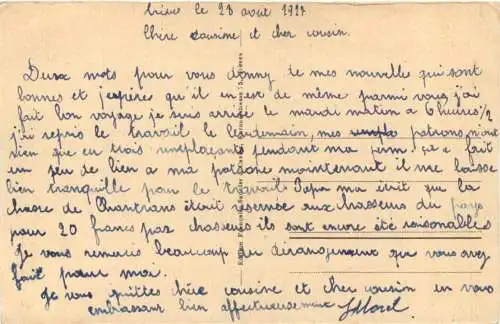 le 28 aout 1927
Chère cousine et cher cousin.
Deux mots pour vous donny de mes nouvelle qui sont
bonnes et j'espères qu'il en est de même parmi vous, j'ai
fait bon voyage je suis arrivé le mardi matin a 6 heures 1/2
j'ai repris le travail le lendemain, mes patrons n'ont
rien que eu trois remplaçants pendant ma perm, ça a fait
un peu de bien a ma patrone maintenant il me laisse
bien tranquille pour le travail Papa ma écrit que la
chasse de était réservée aux chasseurs du pays
pour 20 francs par chasseurs ils sont encore été raisonables
Je vous remercies beaucoup du dérangement que vous avez
fait pour moi.
Je vous quittes chère cousine et cher cousin en vous
embrassant bien affectueusement Morel